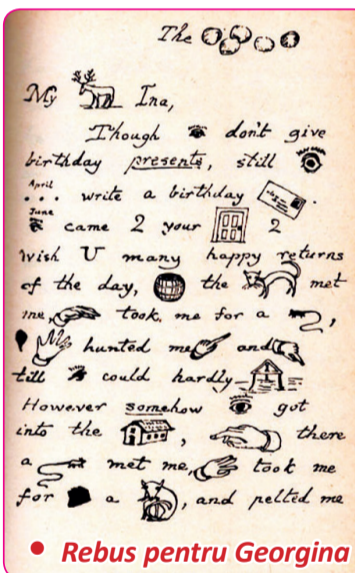 The
My Ina,
Though don't give
birthday presents, still
April
... write a birthday .
June
came 2 your 2
wish U many happy returns
of the day, the met
me, took me for a ,
hunted me and
till could hardly
However somehow got
into the , there
a met me, took me
for a , and pelted me
• Rebus pentru Georgina